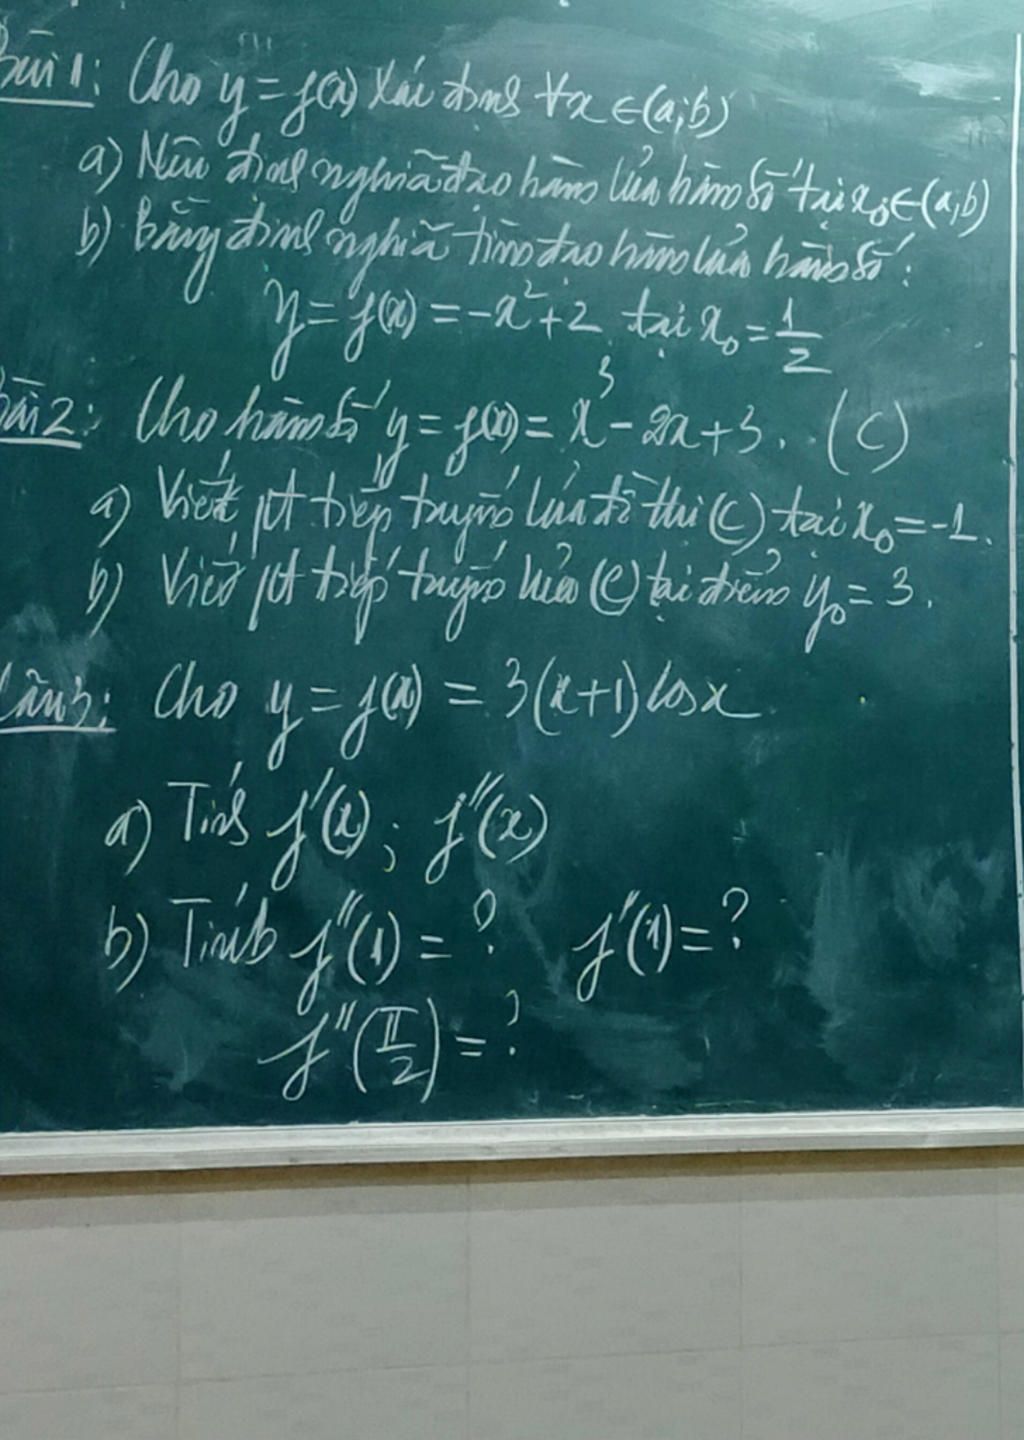 Bài 1: Cho y = f(x) xác định ∀x ∈ (a;b)
a) Nêu định nghĩa đạo hàm của hàm số tại x₀ ∈ (a;b)
b) Bằng định nghĩa tìm đạo hàm của hàm số:
y = f(x) = -x² + 2 tại x₀ = 1/2
Bài 2: Cho hàm số y = f(x) = x³ - 2x + 3. (C)
a) Viết pt tiếp tuyến của đồ thị (C) tại x₀ = -1.
b) Viết pt tiếp tuyến của (C) tại điểm y₀ = 3.
Câu 3: Cho y = f(x) = 3(x+1) cos x
a) Tính f'(x); f''(x)
b) Tính f''(1) = ? f''(1) = ?
f''(π/2) = ?